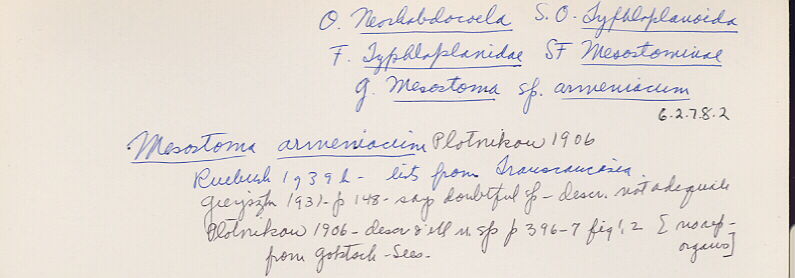 O. Neorhabdocoela S.O. Typhloplanoida
F. Typhloplanidae SF Mesostominae
g. Mesostoma sp. armeniacum
6.2.7.8.2
Mesostoma armeniacum Plotnikow 1906
Ruebush 1939 - lists from Transcaucasia
Gieysztor 1931 - p 148 - says doubtful sp - descr. not adequate
Plotnikow 1906 - descr & ill n. sp p 396-7 fig 1, 2 [no rep-
from Goktsch - Sees - organs]